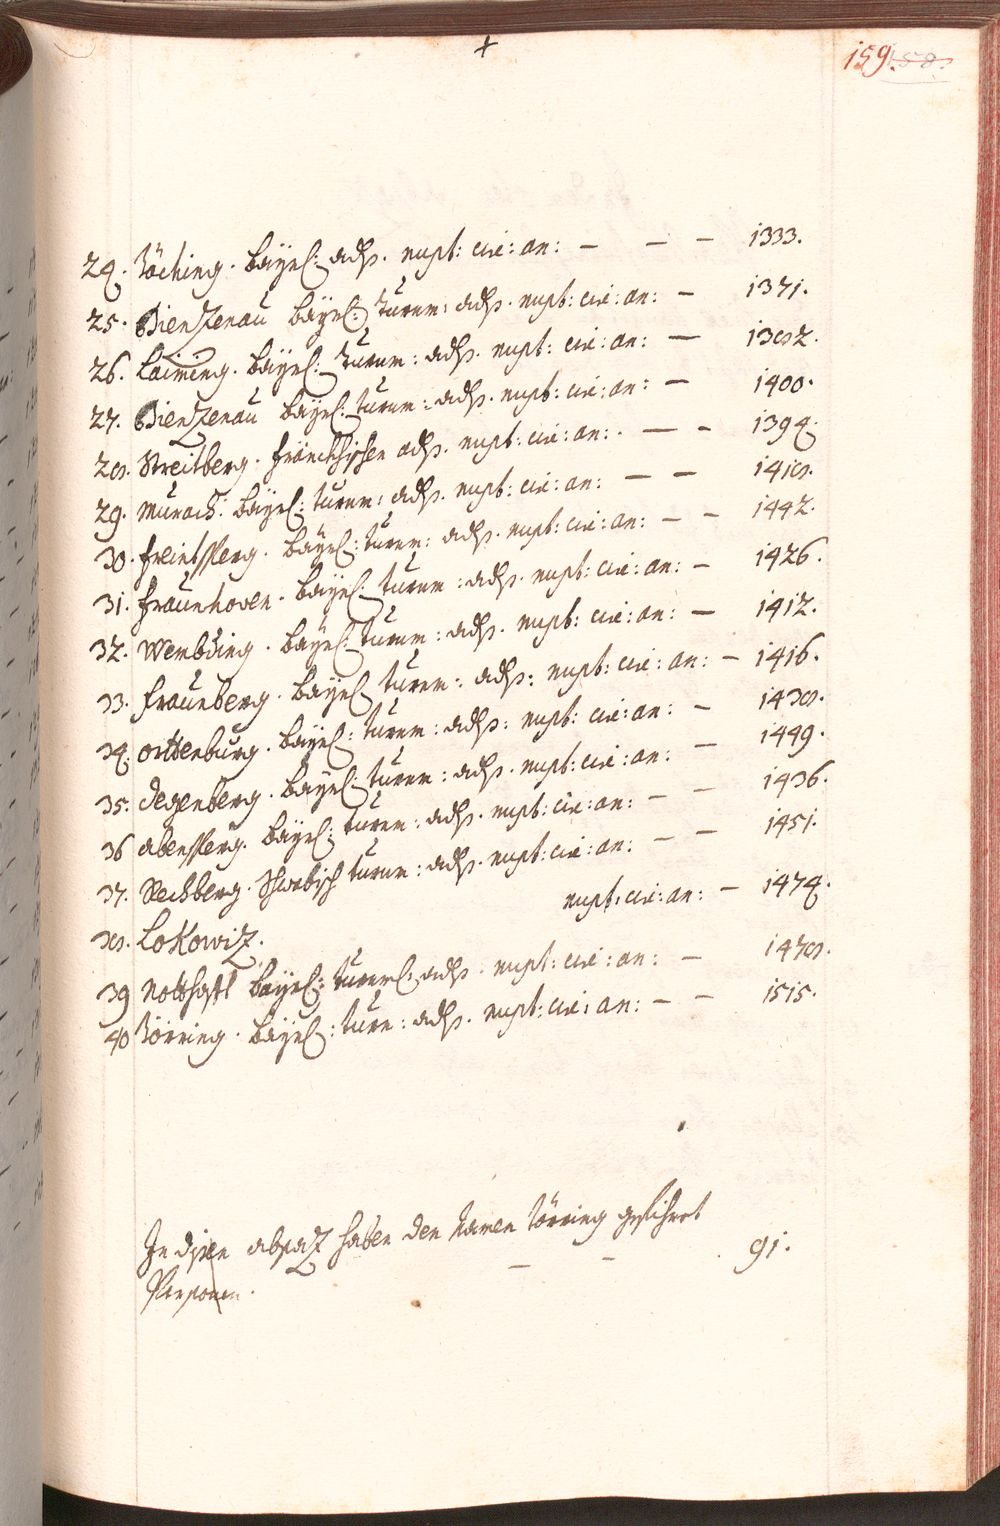 159. 158.
24. Töching. Bayrl: adl. nupt: cir: an: — — — 1333.
25. Bienzenau Bayrl: Turnn: adl. nupt: cir: an: — 1371.
26. Laiming. Bayrl: Turnn: adl. nupt: cir: an: — 1382.
27. Bienzenau Bayrl: Turnn: adl. nupt: cir: an: — 1400.
28. Streitberg. Fränckhischen adl. nupt: cir: an: — - 1394.
29. Murach: Bayrl: Turnn: adl. nupt: cir: an: — — 1418.
30. Freintsperg. Bayrl: Turnn: adl. nupt: cir: an: — — 1442.
31. Fraunhoven. Bayrl: Turnn: adl. nupt: cir: an: — 1426.
32. Wembding. Bayrl: Turnn: adl. nupt: cir: an: — 1412.
33. Fraunberg. Bayrl Turnn: adl: nupt: cir: an: — 1416.
34. Orttenburg. Bayrl: Turnn: adl: nupt: cir: an: — 1438.
35. Degenberg. Bayrl: Turnn: adl. nupt: cir: an: — 1449.
36 Abensperg. Bayrl: Turnn: adl. nupt: cir: an: — — 1436.
37. Rechberg. Schwebisch Turnn: adl. nupt: cir: an: — — 1451.
38. Lokowiz. nupt: cir: an: — 1474.
39 Notthafft Bayrl: Turnrl: adl. nupt: cir: an: — 1478.
40 Törring. Bayrl: Turn: adl. nupt: cir: an: — — 1515.
In disen absaz haben den Namen Törring geführet
Personen. — — 91.